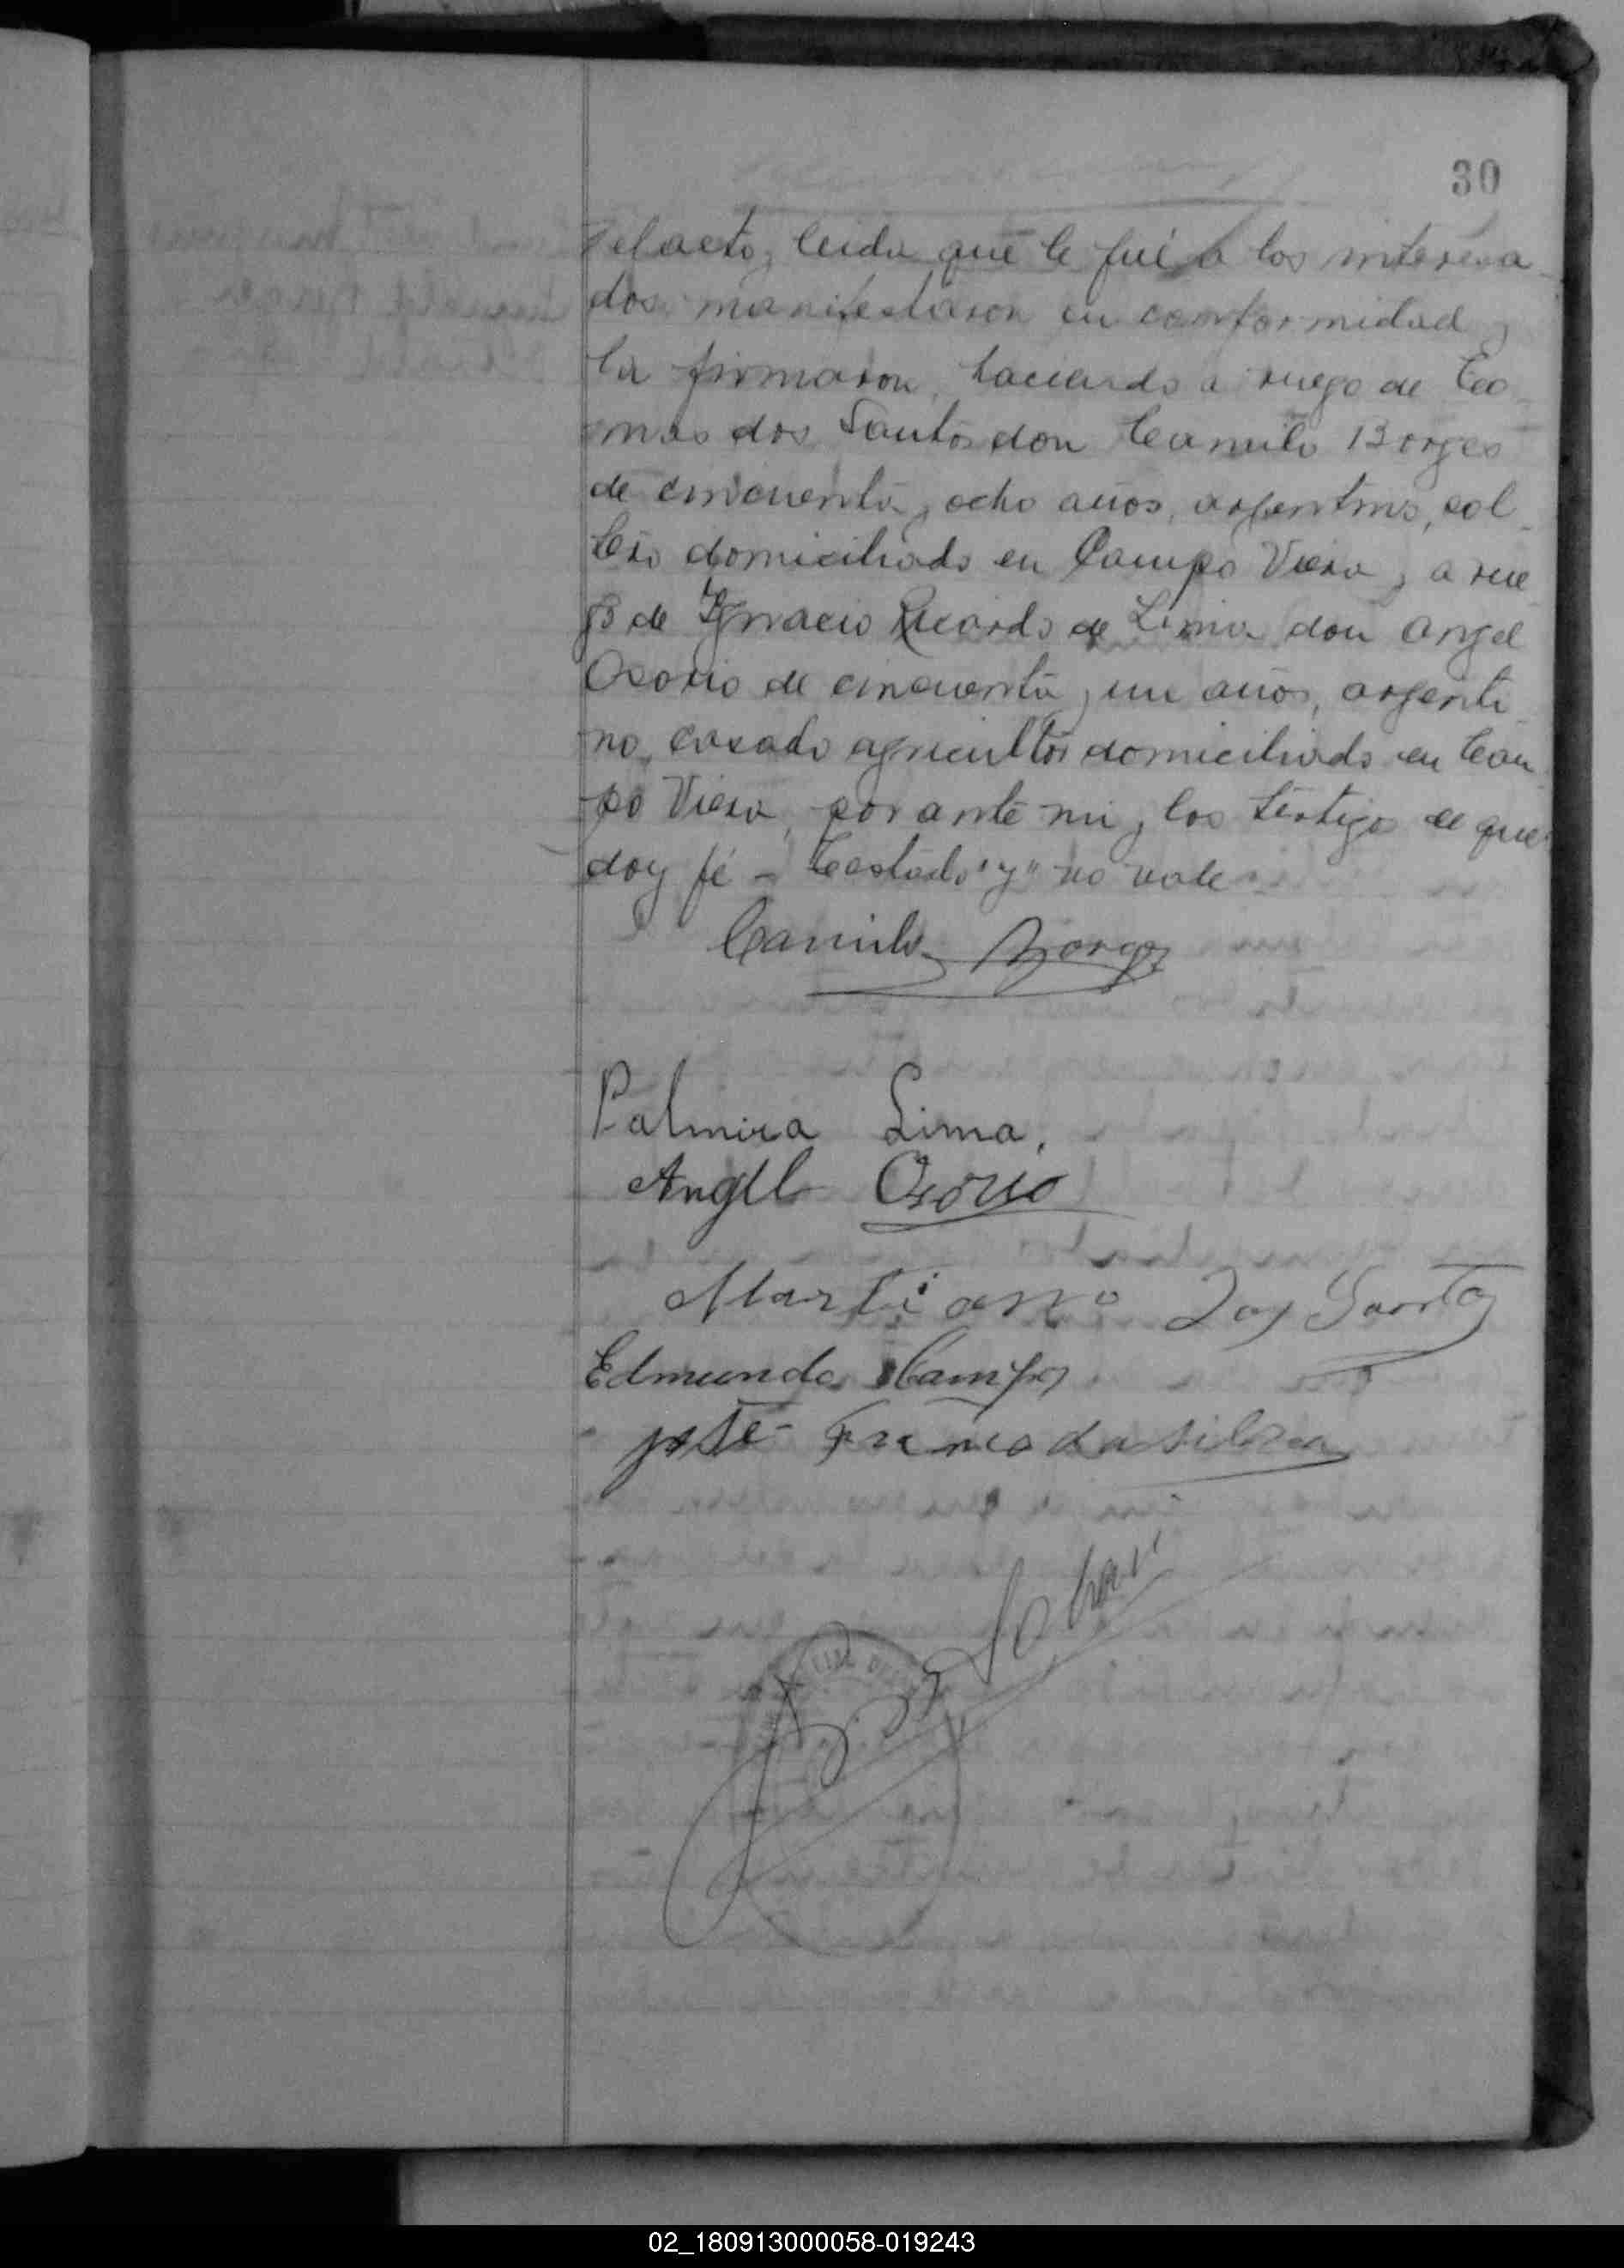 30
el acto, leida que le fué a los interesa-
dos manifestaron su conformidad y
la firmaron, haciendo a ruego de Teo-
mas dos Santos don Camilo Borges
de cincuenta y ocho años, argentino, sol-
tero domiciliado en Campo Viera, a rue-
go de Ignacio Ricardo de Lima don Angel
Osorio de cincuenta y un años, argenti-
no, casado agricultor domiciliado en Cam-
po Viera, por ante mi y los testigos de que
doy fé - Testado "y" no vale
Camilo Borges
Palmira Lima,
Angel Osorio
Martiano Dos Santos
Edmundo Campos
José Franco da Silva
02_180913000058-019243